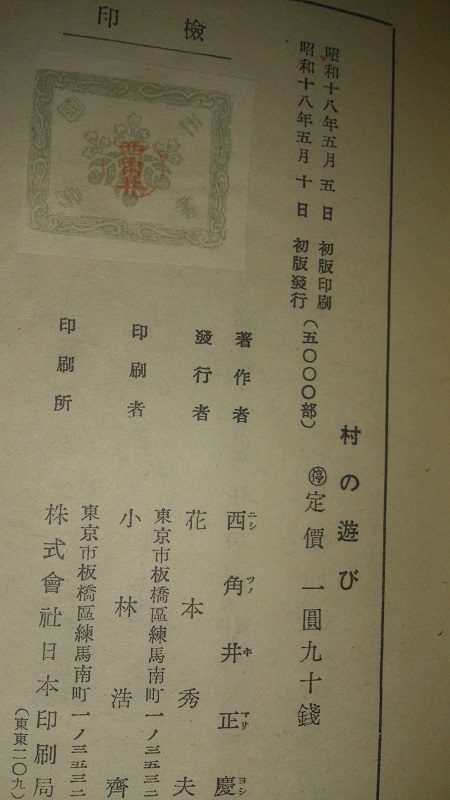 昭和十八年五月五日 初版印刷
昭和十八年五月十日 初版發行（五〇〇〇部）
村の遊び
停定價 一圓九十錢
檢印
西角井
著作者 西角井正慶
ニシ ツノ ヰ マサ ヨシ
發行者 花本秀夫
東京市板橋區練馬南町一ノ三五三二
印刷者 小林浩齊
東京市板橋區練馬南町一ノ三五三二
印刷所 株式會社日本印刷局
（東東二〇九）